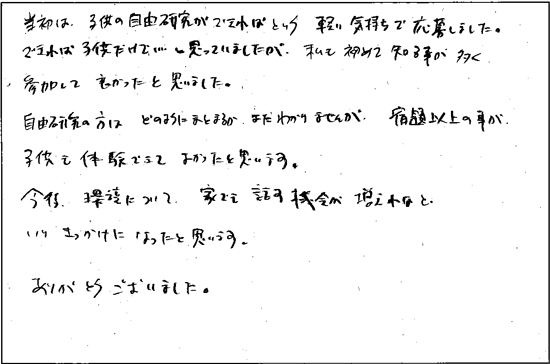 当初は、子供の自由研究ができればという 軽い気持ちで応募しました。
できれば子供だけで…と思っていましたが、私も初めて知る事が多く
参加して良かったと思いました。
自由研究の方は どのようにまとまるか まだわかりませんが、宿題以上の事が、
子供も体験できて よかったと思います。
今後、環境について、家でも話す機会が増えればと、
いいきっかけになったと思います。
ありがとうございました。